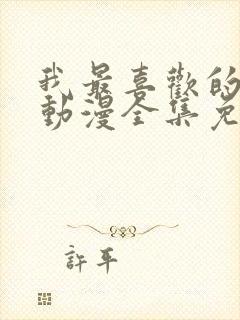 我最喜歡的
動漫全集免
許平